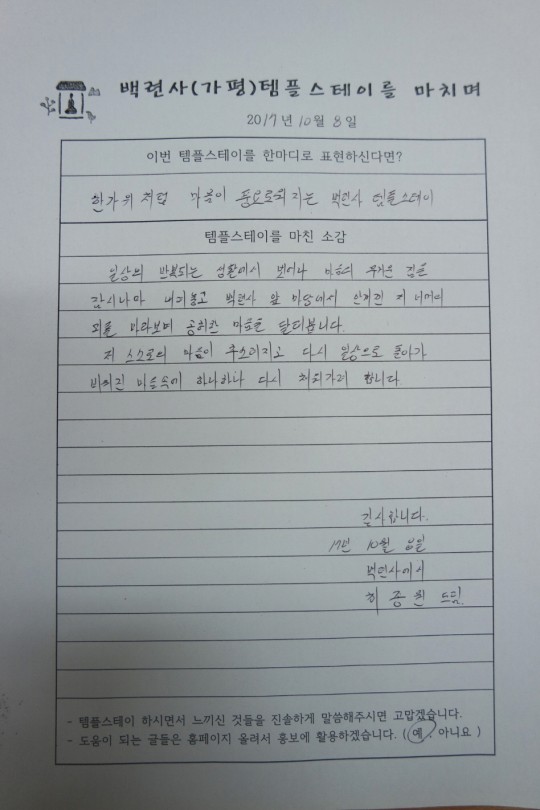 백련사(가평)템플스테이를 마치며
2017년 10월 8일
이번 템플스테이를 한마디로 표현하신다면?
한가위 처럼 마음이 풍요로워 지는 백련사 템플스테이
템플스테이를 마친 소감
일상의 반복되는 생활에서 벗어나 마음의 무거운 짐을
잠시나마 내려놓고 백련사 앞 마당에서 안개낀 저 너머의
뫼를 바라보며 공허한 마음을 달래봅니다.
저 스스로의 마음이 추스려지고 다시 일상으로 돌아가
비워진 마음속에 하나하나 다시 채워가려 합니다
감사합니다.
17년 10월 8일
백련사에서
허 종 드림
- 템플스테이 하시면서 느끼신 것들을 진솔하게 말씀해주시면 고맙겠습니다.
- 도움이 되는 글들은 홈페이지 올려서 홍보에 활용하겠습니다. ( 예 , 아니요 )